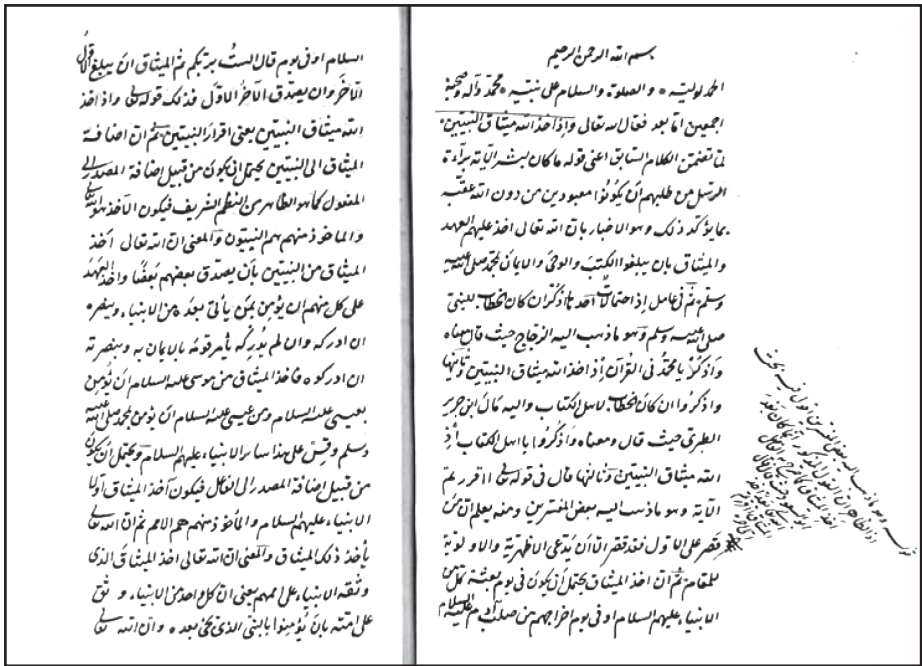 بسم الله الرحمن الرحيم
الحمد لوليه والصلوة والسلام على نبيه محمد وآله وصحبه
اجمعين اما بعد فقال الله تعالى واذ اخذ الله ميثاق النبيين
لما تضمن الكلام السابق اعنى قوله ما كان لبشر الآية براءة
الرسل من طلبهم أن يكونوا معبودين من دون الله عقبه
بما يؤكد ذلك وهو الاخبار بان الله تعالى اخذ عليهم العهد
والميثاق بان يبلغوا الكتب والوحى والايمان بمحمد صلى الله عليه
وسلم ثم فى عامل إذ احتمالات احدها اذكر ان كان الخطاب للنبى
صلى الله عليه وسلم وهو ما ذهب اليه الزجاج حيث قال معناه
واذكر يا محمد فى القرآن إذ اخذ الله ميثاق النبيين وثانيها
واذكروا ان كان الخطاب لاهل الكتاب واليه مال ابن جرير
الطبرى حيث قال ومعناه واذكروا يا اهل الكتاب إذ اخذ
الله ميثاق النبيين وثالثها قال فى قوله تعالى أاقررتم
الآية وهو ما ذهب اليه بعض المفسرين ومنه يعلم ان من
قصر على الاول فقد قصر الا أن يدعى الاظهرية والاولوية
للمقام ثم ان اخذ الميثاق يحتمل أن يكون فى يوم بعثة كل من
الانبياء عليهم السلام او فى يوم اخراجهم من صلب آدم عليه السلام
وهو ما ذهب اليه بعض المفسرين
السلام او فى يوم قال الست بربكم ثم الميثاق ان يبلغ الاول
الآخر وان يصدق الآخر الاول فذلك قوله تعالى واذ اخذ
الله ميثاق النبيين يعنى اقرار النبيين ثم ان اضافة
الميثاق الى النبيين يحتمل ان يكون من قبيل اضافة المصدر الى
المفعول كما هو الظاهر من النظم الشريف فيكون الآخذ هو الله تعالى
والمأخوذ منهم هم النبيون والمعنى ان الله تعالى اخذ
الميثاق من النبيين بأن يصدق بعضهم بعضا واخذ العهد
على كل منهم ان يؤمن بمن يأتى بعده من الانبياء وينصره
ان ادركه وان لم يدركه يأمر قومه بالايمان به وبنصرته
ان ادركوه فاخذ الميثاق من موسى عليه السلام أن يؤمن
بعيسى عليه السلام ومن عيسى عليه السلام ان يؤمن بمحمد صلى الله عليه
وسلم وقس على هذا سائر الانبياء عليهم السلام ويحتمل أن يكون
من قبيل اضافة المصدر الى الفاعل فيكون آخذ الميثاق اولا
الانبياء عليهم السلام والمأخوذ منهم هم الامم ثم ان الله تعالى
يأخذ ذلك الميثاق والمعنى ان الله تعالى اخذ الميثاق الذى
وثقه الانبياء على اممهم يعنى ان كل واحد من الانبياء وثق
على امته بان يؤمنوا بالنبى الذى يجئ بعده وان الله تعالى